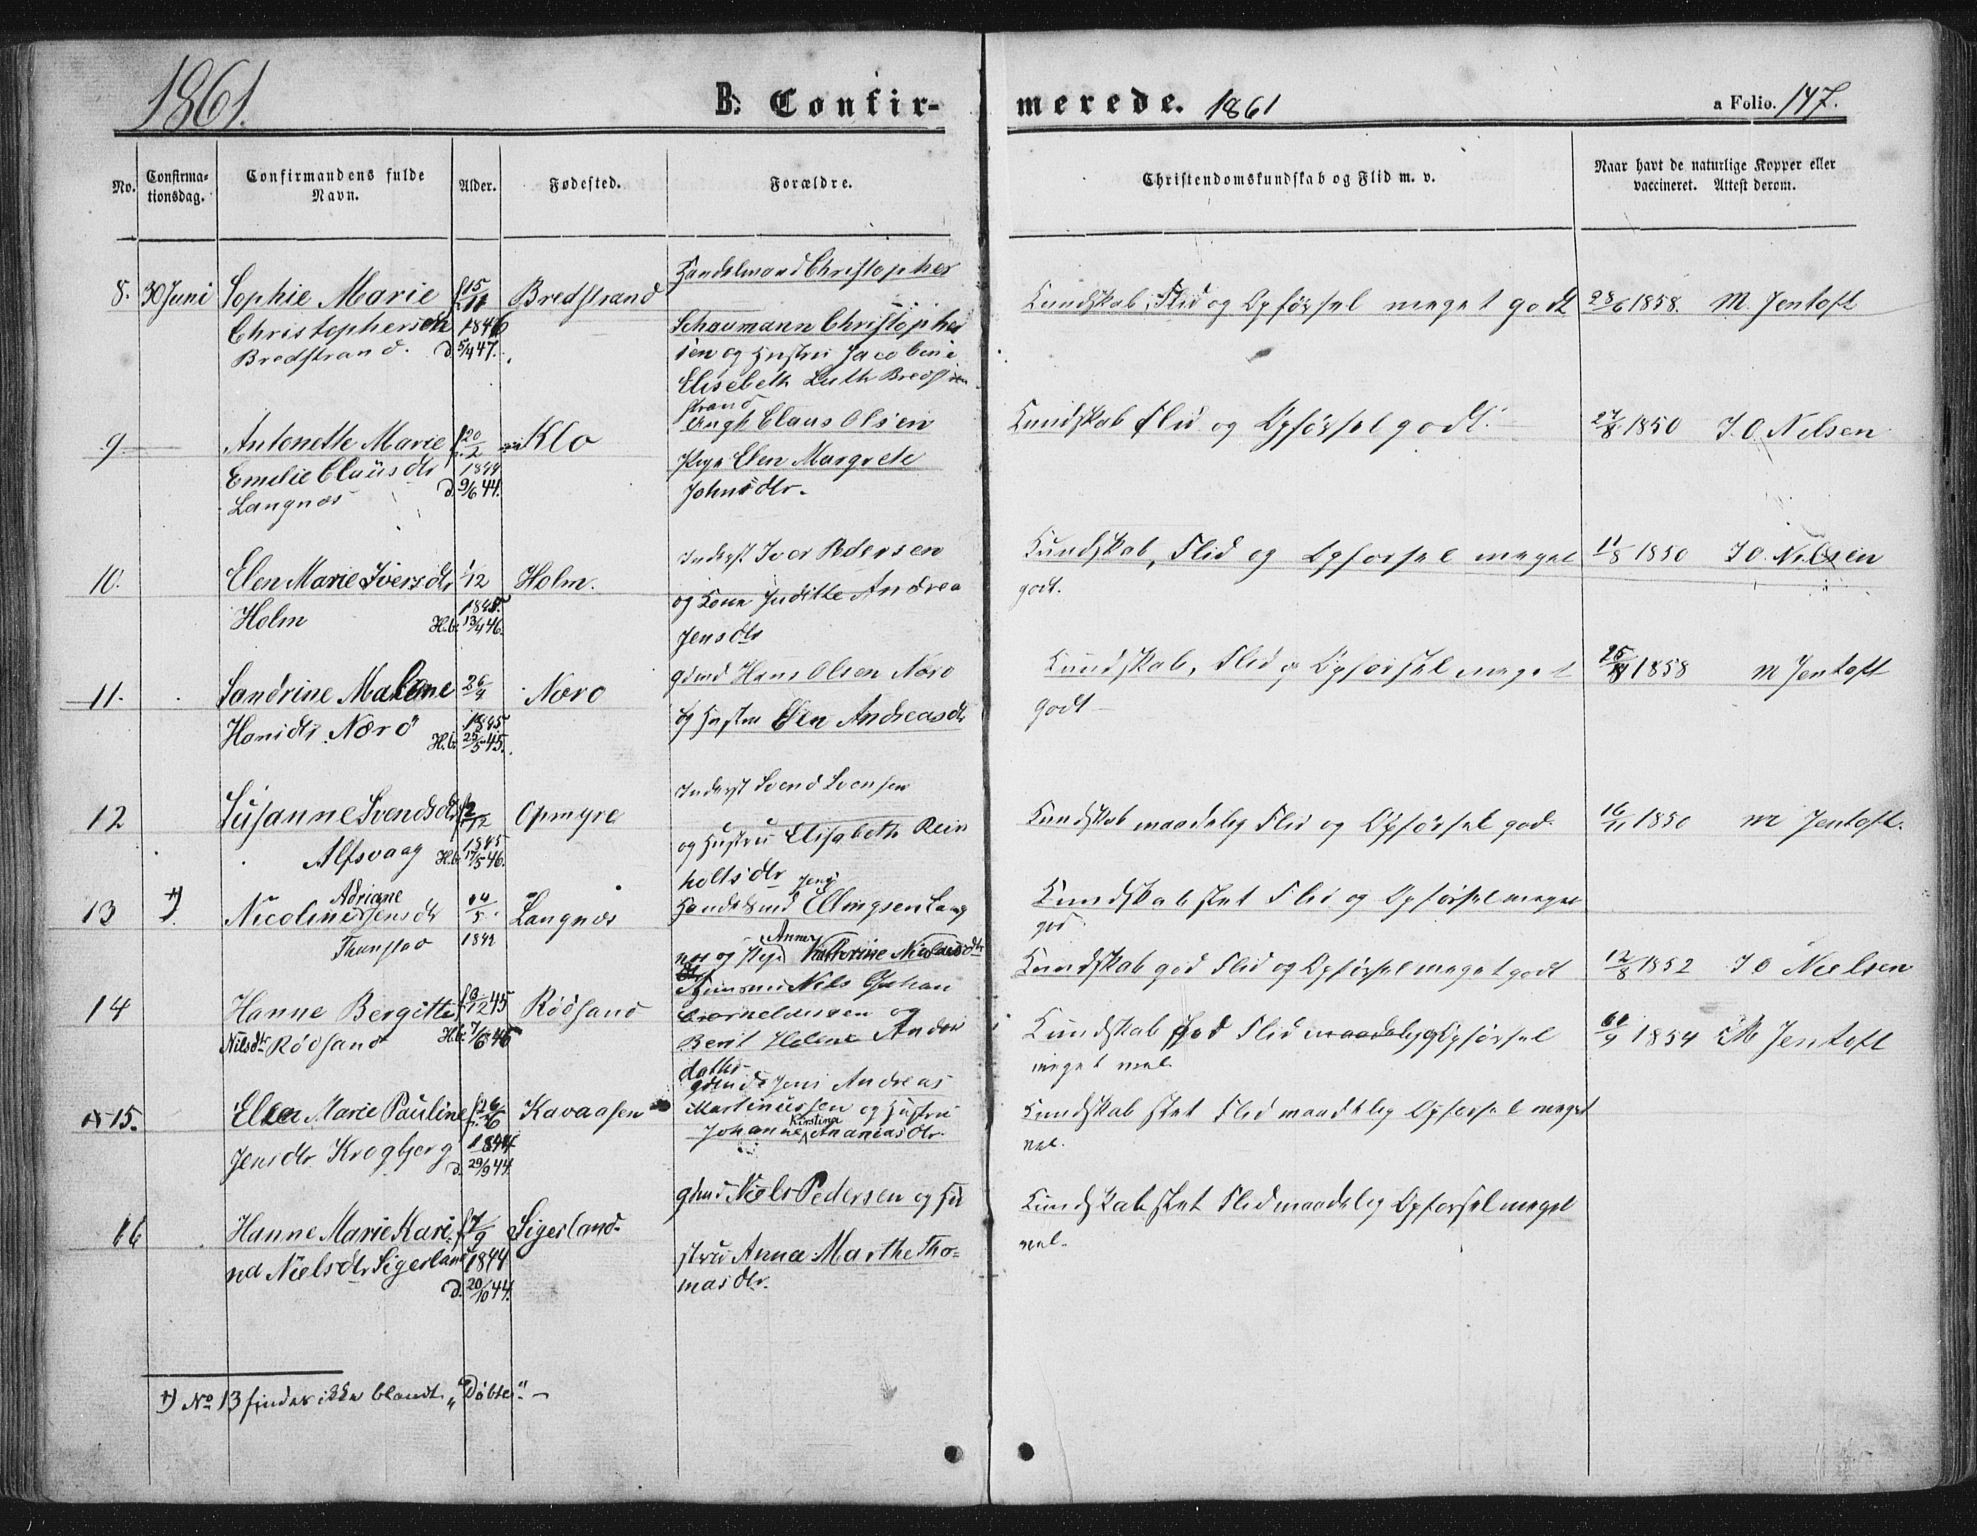 1861.
B. Confir-
merede. 1861
a Folio. 147.
No.
Confirma-
tionsdag.
Confirmandens fulde
Navn.
Alder.
Fødested.
Forældre.
Christendomskundskab og Flid m. v.
Naar havt de naturlige Kopper eller
vaccineret. Attest derom.
8. 30 Juni Sophie Marie f. 15/11 Bredstrand Handelmand Christopher
Christophersen 1846 Schaumann Christopher
Bredstrand. d. 5/4 47. sen og Hustru Jacobine
Elisebeth Luth Bred
strand
Kundskab, Flid og Opførsel meget godt 28/6 1858. M. Jentoft
9 Antonette Marie f. 20/2 Klo Ungk Claus Olsen
Emelie Clausdtr 1844 Pige Elen Margrete
Langnæs d. 9/6 44. Johnsdtr.
Kundskab Flid og Opførsel godt. 27/8 1850 J. O. Nielsen
10. Elen Marie Iversdtr 1/12 Holm. Inderst Iver Pedersen
Holm 1845. H.b. 13/4 46. og Kone Juditte Andrea
Jensdtr
Kundskab, Flid og Opførsel meget 11/8 1850 J O. Nielsen
godt.
11. Sandrine Malene 26/4 Nærø Gmd Hans Olsen Nærø
Hansdtr. Nærø 1845 H.b. 25/5 45. og Hustru Elen Andreasdtr
Kundskab, Flid og Opførsel meget 1858 M Jentoft
godt
12 Susanne Svendsdtr f. 2/12 Opmyre Inderst Svend Svensen
Alfsvaag 1845 H.b. 17/5 46. og Hustru Elisabeth Rein
holtsdtr
Kundskab maadelig Flid og Opførsel god. 16/11 1850 M Jentoft.
13 *) Nicoline Adriane Jensdtr 14/5 Langnæs Handelsmd Jens Ellingsen Lang
Thunstad 1842 næs og Pige Anne Katherine Nicolaisdtr
Kundskab slet Flid og Opførsel meget
god
14 Hanne Bergitte f. 3/12 45 Rødsand Huusmd Nils Johan
Nilsdtr Rødsand H.b. 7/6 46 Corneliussen og
Berit Helene Anders
datter
Kundskab god Flid og Opførsel meget godt 12/8 1852 J O Nielsen
Kundskab god Flid maadelig Opførsel 1854 M Jentoft
meget vel.
15. Elen Marie Pauline f. 26/6 Kavaasen Gmd Jens Andreas
Jensdtr Krogbjerg 1844 d. 29/9 44. Martinussen og Hustru
Johanne Kirstina Ananiasdtr.
Kundskab slet Flid maadelig Opførsel meget
vel.
16 Hanne Marie Kari- f. 7/9 Sigerland. Gmd Niels Pedersen og Hu
na Nielsdtr Sigerland 1844 strue Anna Marthe Tho-
d. 20/10 44. masdtr.
Kundskab slet Flid maadelig Opførsel meget
vel.
*) No 13 findes ikke blandt "Døbte". -